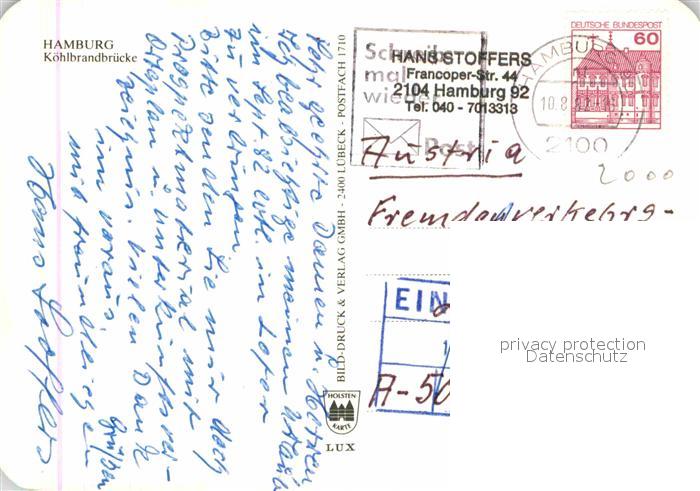 HAMBURG
Köhlbrandbrücke
Sehr geehrte Damen u. Herren
Ich beabsichtige meinen Urlaub
im Sept 82 evtl. in Lofer
zu verbringen.
Bitte senden Sie mir doch
Prospektmaterial mit
Ortsplan u. Unterkunftsver-
zeichnis. Vielen Dank
im voraus
mit freundlichen
Grüßen
Hans Stoffers
BILD-DRUCK & VERLAG GMBH - 2400 LÜBECK - POSTFACH 1710
HOLSTEN
KARTE
LUX
Schreib
mal
wie
Post
HANS STOFFERS
Francoper-Str. 44
2104 Hamburg 92
Tel. 040 - 7013313
HAMBURG
10.8
2100
DEUTSCHE BUNDESPOST
60
2000
Austria
Fremdenverkehrs-
EIN
A-50
privacy protection
Datenschutz